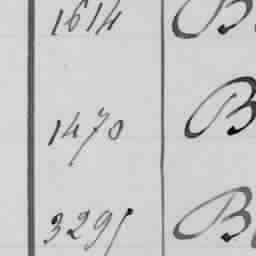 1614 B
1470 B
3295 B